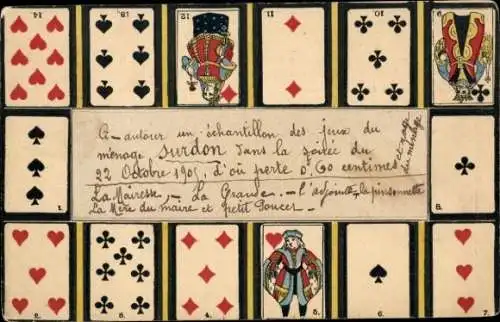 14.
13.
12
11
10.
9
Ci-autour un échantillon des jeux du
ménage surdon dans la soirée du
22 Octobre 1901, d'où perte 0,60 centimes
et gage du ménage
La Mairesse, - La Grause - l'adjointe - la pinsonnette
La Mère du maire et petit Poucet -
1.
8.
2.
3.
4.
5.
6.
7.